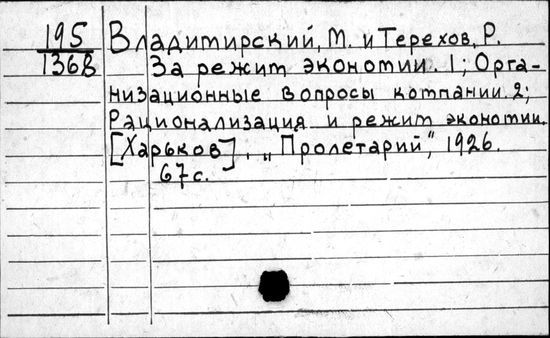 195 Владимирский, М. и Терехов, Р.
136В За режим экономии. 1; Орга-
низационные вопросы компании. 2;
Рационализация и режим экономии.
[Харьков]. „Пролетарий", 1926.
67 с.